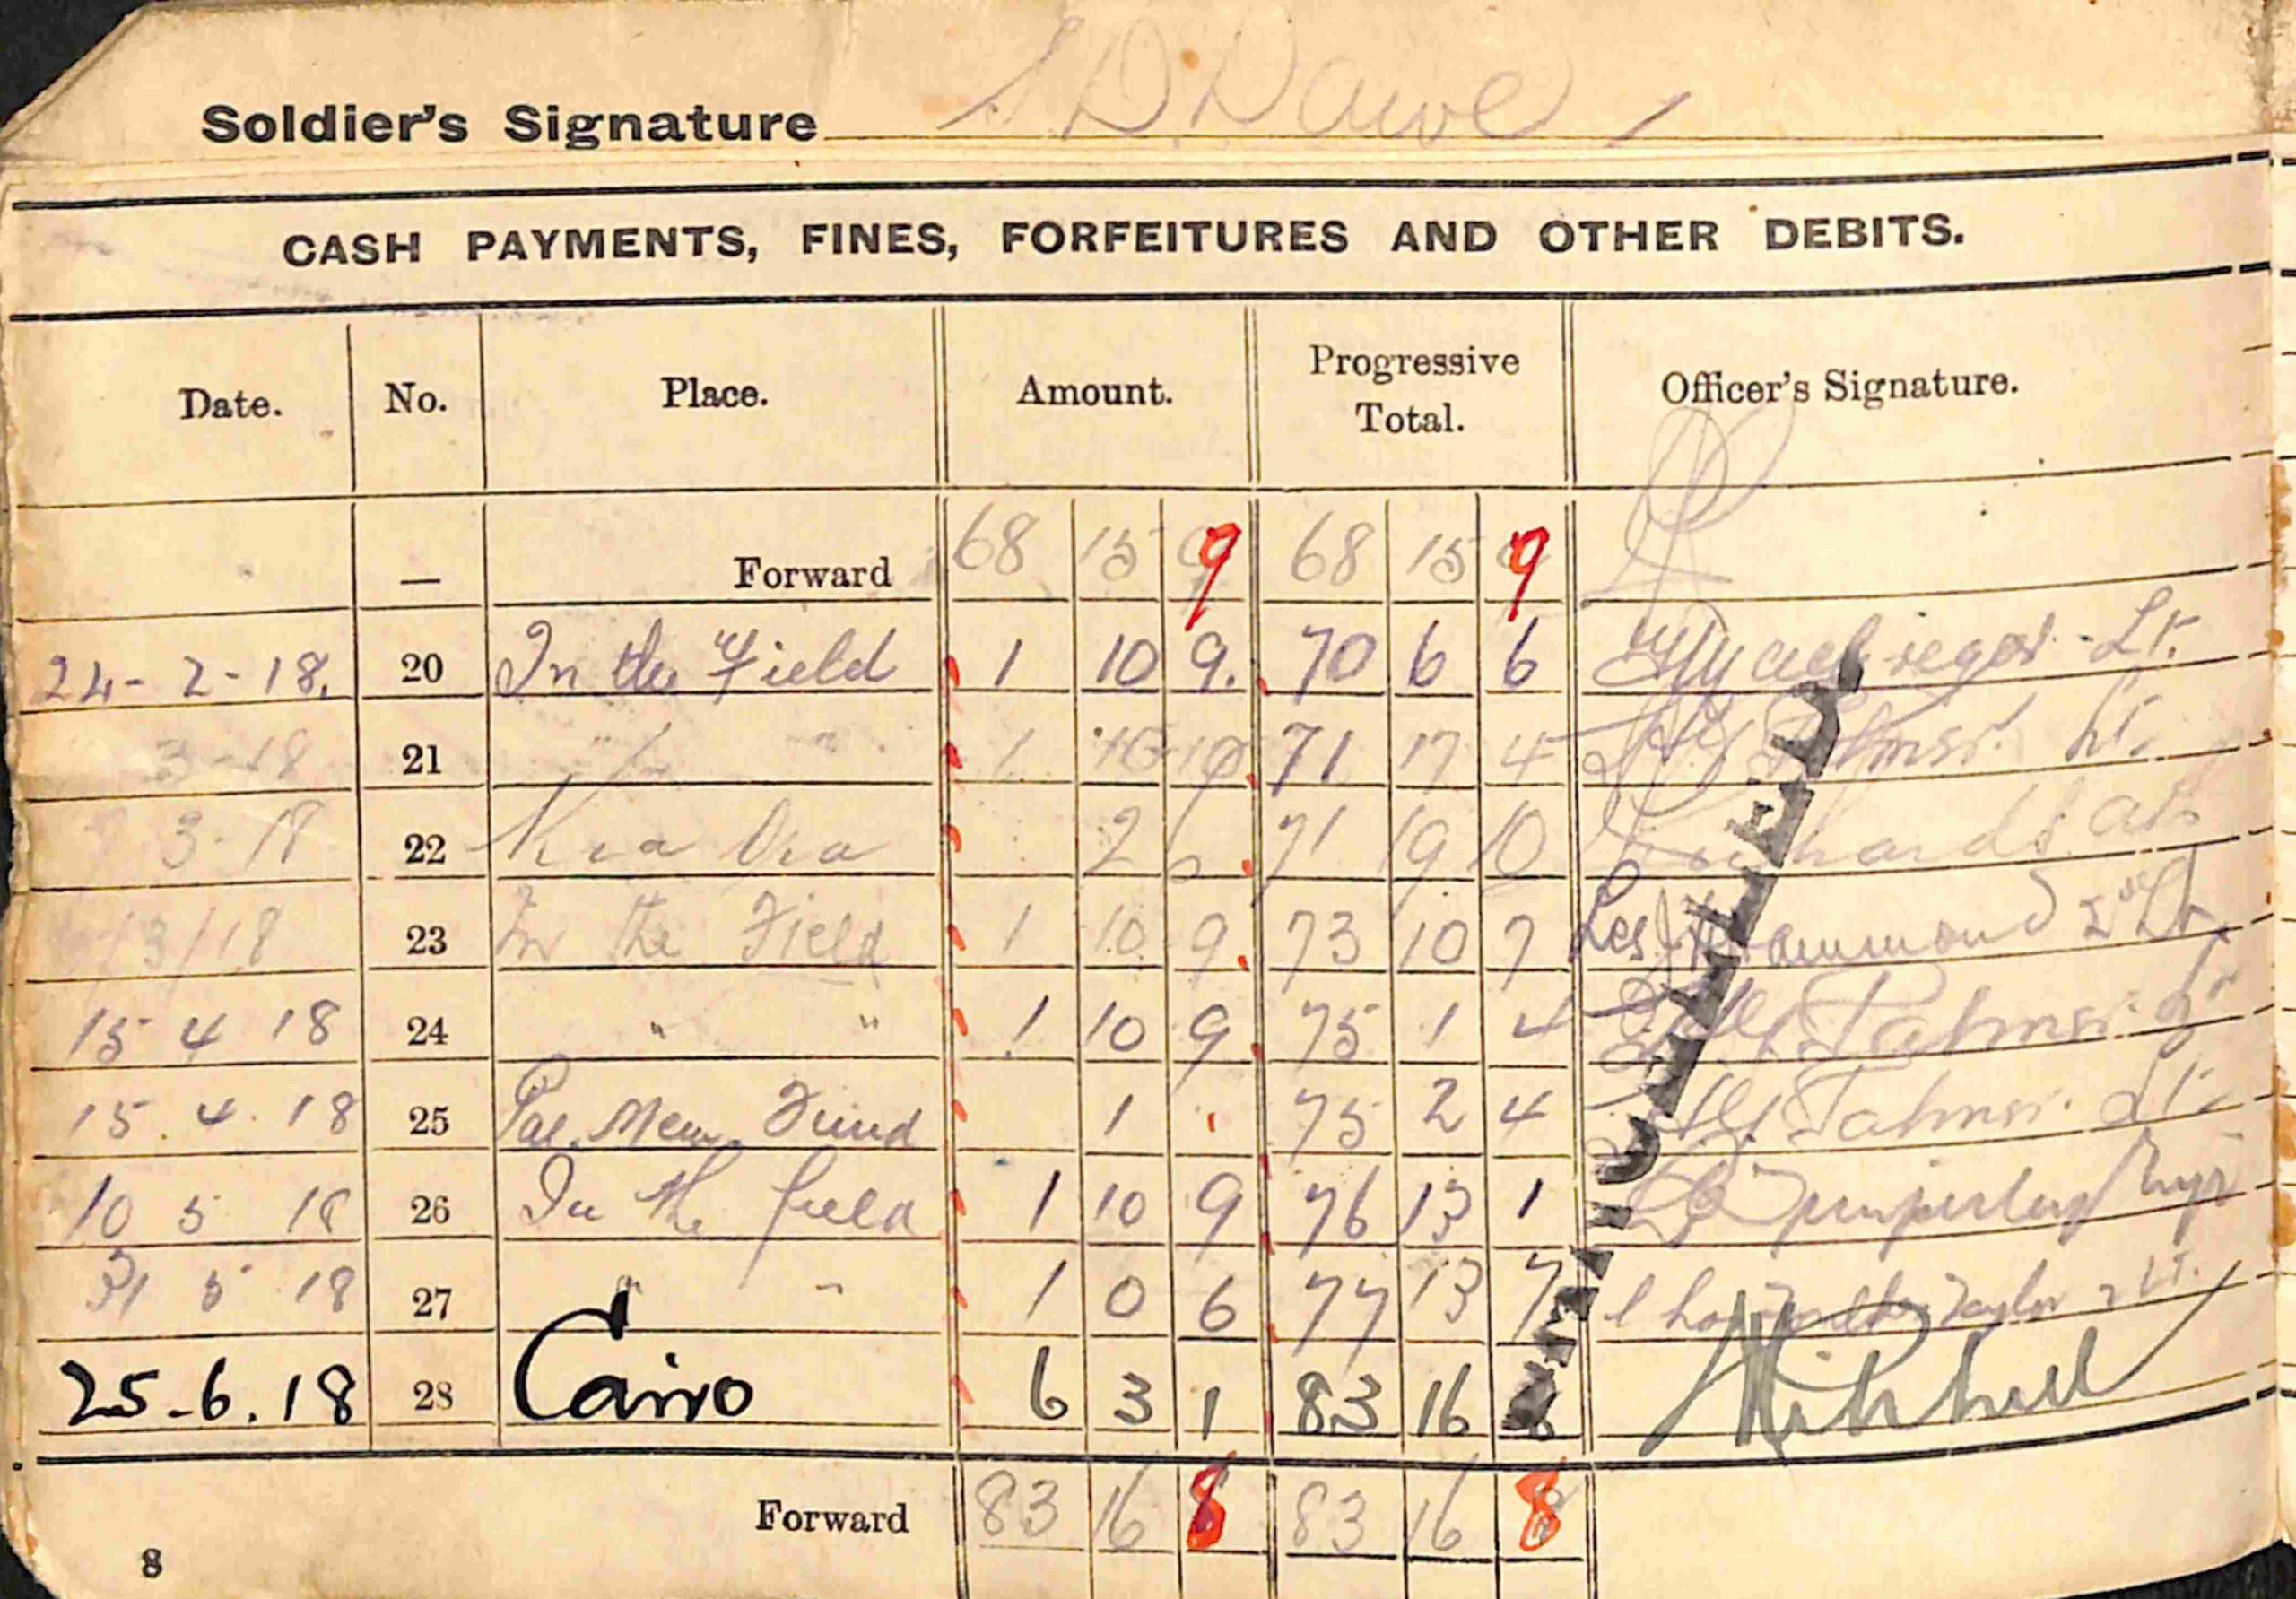 Soldier's Signature S D. Dawe
CASH PAYMENTS, FINES, FORFEITURES AND OTHER DEBITS.
Date. No. Place. Amount. Progressive Total. Officer's Signature.
— Forward 68 15 9 68 15 9
24-2-18. 20 In the Field 1 10 9. 70 6 6 Lt.
3-18 21 " " 1 10 10 71 17 4 Lt.
3-18 22 2 6 71 19 10
/3/18 23 In the Field 1 10 9 73 10 7 Les Hammond 2nd Lt
15 4 18 24 " " 1 10 9 75 1 4
15.4.18 25 Pal. Mem. Fund 1 75 2 4 Lt.
10 5 18 26 In the field 1 10 9 76 13 1
31 5 18 27 " " 1 0 6 77 13 7 Taylor 2 Lt.
25.6.18 28 Cairo 6 3 1 83 16 8 Mitchell
CANCELLED
Forward 83 16 8 83 16 8
8